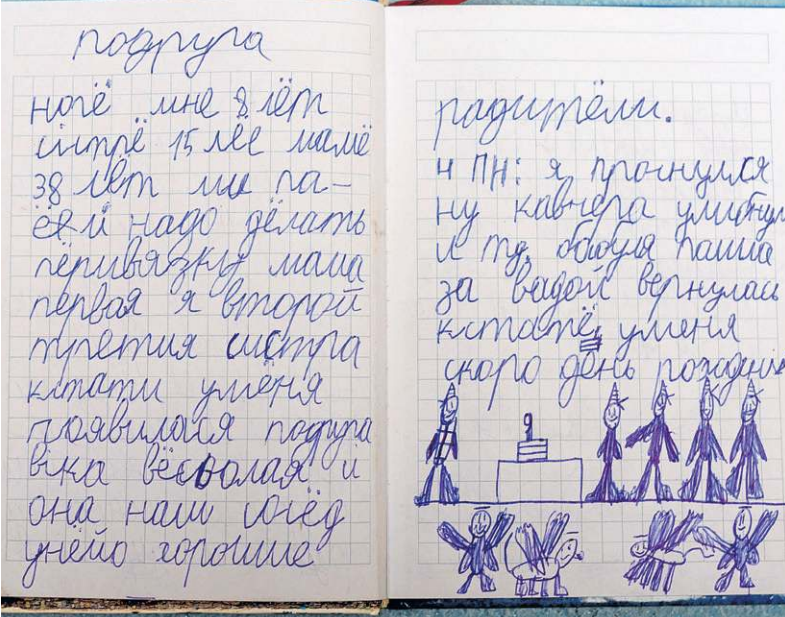 подруга
ногё мне 8 лёт
систрё 15 лее мамё
38 лёт ми па-
ёей надо дёлать
пёривязку мама
первая я второй
третия систра
кстати умёня
появилася подруга
віка вёсолая и
она наш сосёд
унёйо хорошие
радитёли.
4 ПН: я проснулся
ну кавчера улибнул
и тд. бабуля пашла
за вадой вернулась
кстатё уменя
скоро дёнь рождения
9